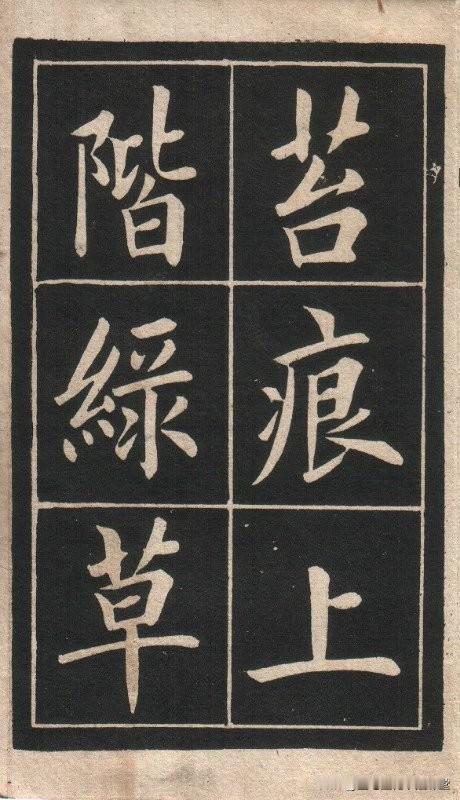 苔痕上
階緑草